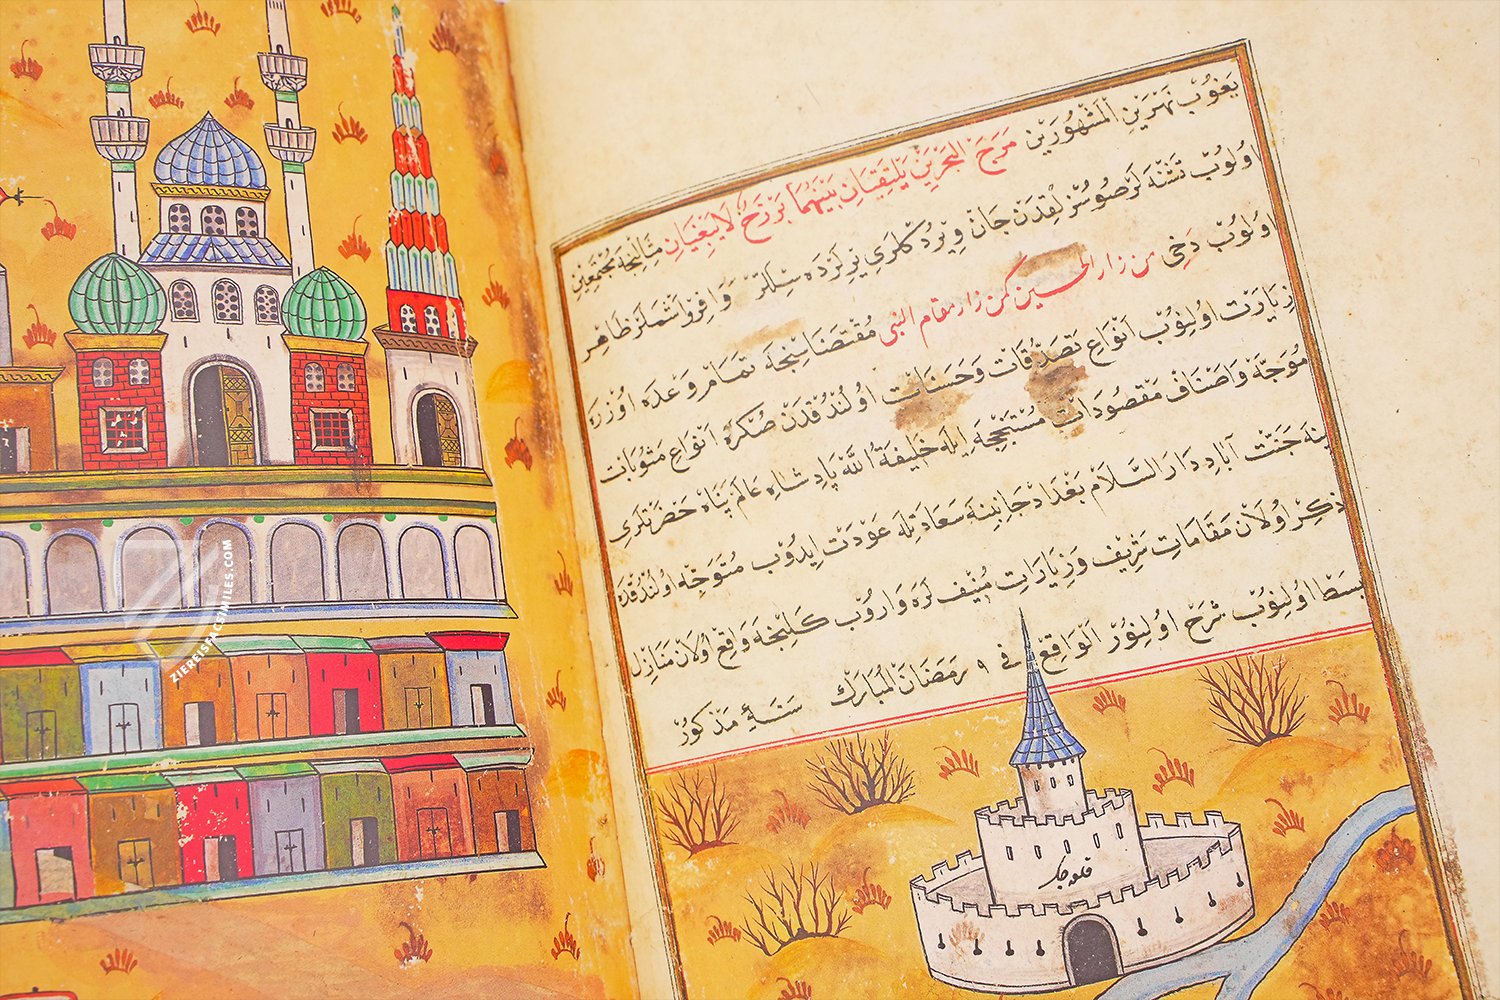 يغوب نهرين المشهورين مرج البحرين يلتقيان بينهما برزخ لا يبغيان مثالنجه مجتمعين
اولوب تشنه لر صوسزلقدن جان ويردكلري يرلرده سبيلكر وافر واشملر ظاهر
اولوب دخي من زار الحسين كمن زار مقام النبي مقتضاسنجه تمامر وعده اوزره
زيارت اولنوب انواع تصدقات وحسنات اولندقدن صكره انواع مثوبات
موجّه واصناف مقصودات مستنججه ايله خليفة الله پادشاه عالم پناه حضرتلري
ينه جنّت آباد دار السلام بغداد جانبينه سعادتله عودت ايدوب متوجّه اولندقده
ذكر اولان مقامات شريف وزيارات منيف لره واروب كلنجه واقع اولان منازل
بسط اولنوب شرح اولنور الواقع في ٩ رمضان المبارك سنۀ مذكور
قلعه جك
ZIEREISFACSIMILES.COM